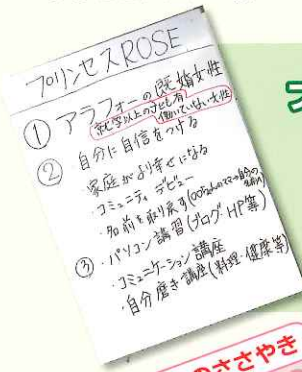 プリンセスROSE
① アラフォーの既婚女性
就学以上の子ども有
働いていない女性
② 自分に自信をつける
家庭がより幸せになる
・コミュニティデビュー
・名前を取り戻す(〇〇ちゃんのママ→自分の名前)
③ ・パソコン講習(ブログ・HP等)
・コミュニケーション講座
・自分磨き講座(料理・健康等)
のささやき